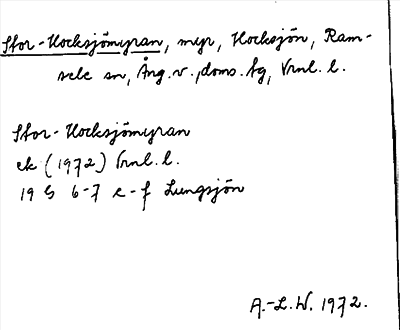 Stor-Hocksjömyran, myr, Hocksjön, Ram-
sele sn, Ång.v., doms. tg, Vrnl. l.
Stor-Hocksjömyran
ek (1972) Vrnl. l.
19 G 6-7 e-f Lungsjön
A.-L.W. 1972.